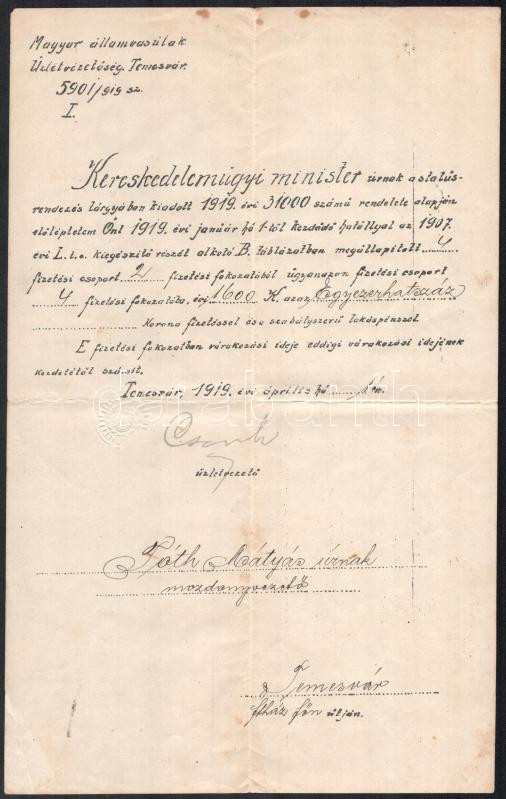 Magyar államvasutak
Üzletvezetőség. Temesvár.
5901/919 sz.
I.
Kereskedelemügyi minister úrnak a státus-
rendezés tárgyában kiadott 1919. évi 31000 számú rendelete alapján
előléptetem Önt 1919. évi január hó 1-től kezdődő hatállyal az 1907.
évi L. t. c. kiegészítő részét alkotó B. táblázatban megállapitott 4
fizetési csoport 2 fizetési fokozatából ugyanazon fizetési csoport
4 fizetési fokozatába, évi 1600 K. azaz Egyezerhatszáz
Korona fizetéssel és a szabályszerű lakáspénzzel.
E fizetési fokozatban várakozási ideje eddigi várakozási idejének
kezdetétől számit.
Temesvár, 1919. évi április hó 1 én.
üzletvezető
Tóth Mátyás úrnak
mozdonyvezető
Temesvár
fűtház főn útján.
darabanth